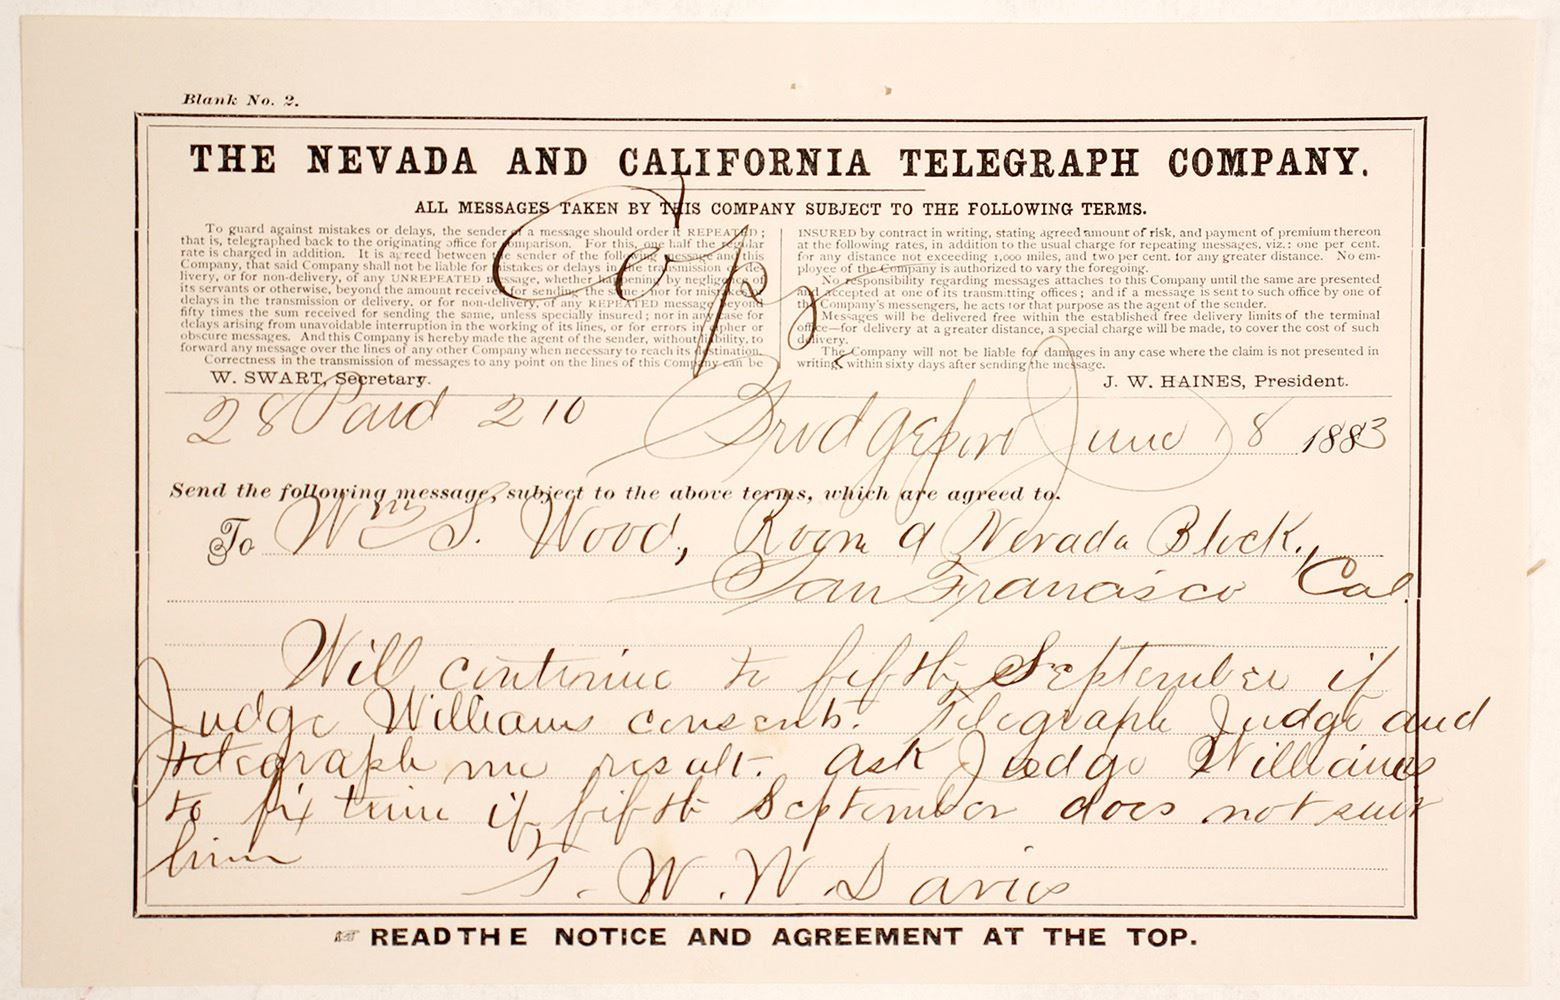 Blank No. 2.
THE NEVADA AND CALIFORNIA TELEGRAPH COMPANY.
ALL MESSAGES TAKEN BY THIS COMPANY SUBJECT TO THE FOLLOWING TERMS.
Copy
To guard against mistakes or delays, the sender of a message should order it REPEATED;
that is, telegraphed back to the originating office for comparison. For this, one half the regular
rate is charged in addition. It is agreed between the sender of the following message and this
Company, that said Company shall not be liable for mistakes or delays in the transmission or de-
livery, or for non-delivery, of any UNREPEATED message, whether happening by negligence of
its servants or otherwise, beyond the amount received for sending the same; nor for mistakes or
delays in the transmission or delivery, or for non-delivery, of any REPEATED message beyond
fifty times the sum received for sending the same, unless specially insured; nor in any case for
delays arising from unavoidable interruption in the working of its lines, or for errors in cipher or
obscure messages. And this Company is hereby made the agent of the sender, without liability, to
forward any message over the lines of any other Company when necessary to reach its destination.
Correctness in the transmission of messages to any point on the lines of this Company can be
W. SWART, Secretary.
INSURED by contract in writing, stating agreed amount of risk, and payment of premium thereon
at the following rates, in addition to the usual charge for repeating messages, viz.: one per cent.
for any distance not exceeding 1,000 miles, and two per cent. for any greater distance. No em-
ployee of the Company is authorized to vary the foregoing.
No responsibility regarding messages attaches to this Company until the same are presented
and accepted at one of its transmitting offices; and if a message is sent to such office by one of
the Company's messengers, he acts for that purpose as the agent of the sender.
Messages will be delivered free within the established free delivery limits of the terminal
office—for delivery at a greater distance, a special charge will be made, to cover the cost of such
delivery.
The Company will not be liable for damages in any case where the claim is not presented in
writing, within sixty days after sending the message.
J. W. HAINES, President.
28 Paid 2 10 Bridgeport June 18 1883
Send the following message, subject to the above terms, which are agreed to.
To Wm S. Wood, Room 9 Nevada Block.,
San Francisco Cal.
Will continue to fifth September if
Judge Williams consents. Telegraph Judge and
telegraph me result. Ask Judge Williams
to fix time if fifth September does not suit
him
T. W. W. Davies
READ THE NOTICE AND AGREEMENT AT THE TOP.